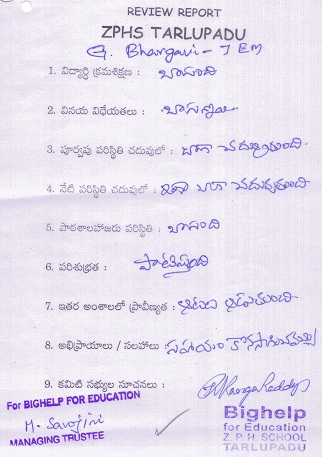 REVIEW REPORT
ZPHS TARLUPADU
G. Bhargavi - 7 EM
1. విద్యార్థి క్రమశిక్షణ : బాగుంది
2. వినయ విధేయతలు : బాగున్నాయి
3. పూర్వపు పరిస్థితి చదువులో : బాగా చదువుతుంది
4. నేటి పరిస్థితి చదువులో : బాగా చదువుతుంది
5. పాఠశాలహాజరు పరిస్థితి : బాగుంది
6. పరిశుభ్రత : పాటిస్తుంది
7. ఇతర అంశాలలో ప్రావీణ్యత : ఆటలు ఆడుతుంది
8. అభిప్రాయాలు / సలహాలు : సహాయం కొనసాగించవచ్చు
9. కమిటి సభ్యుల సూచనలు :
For BIGHELP FOR EDUCATION
M. Sarojini
MANAGING TRUSTEE
Ranga Reddy
Bighelp
for Education
Z. P. H. SCHOOL
TARLUPADU